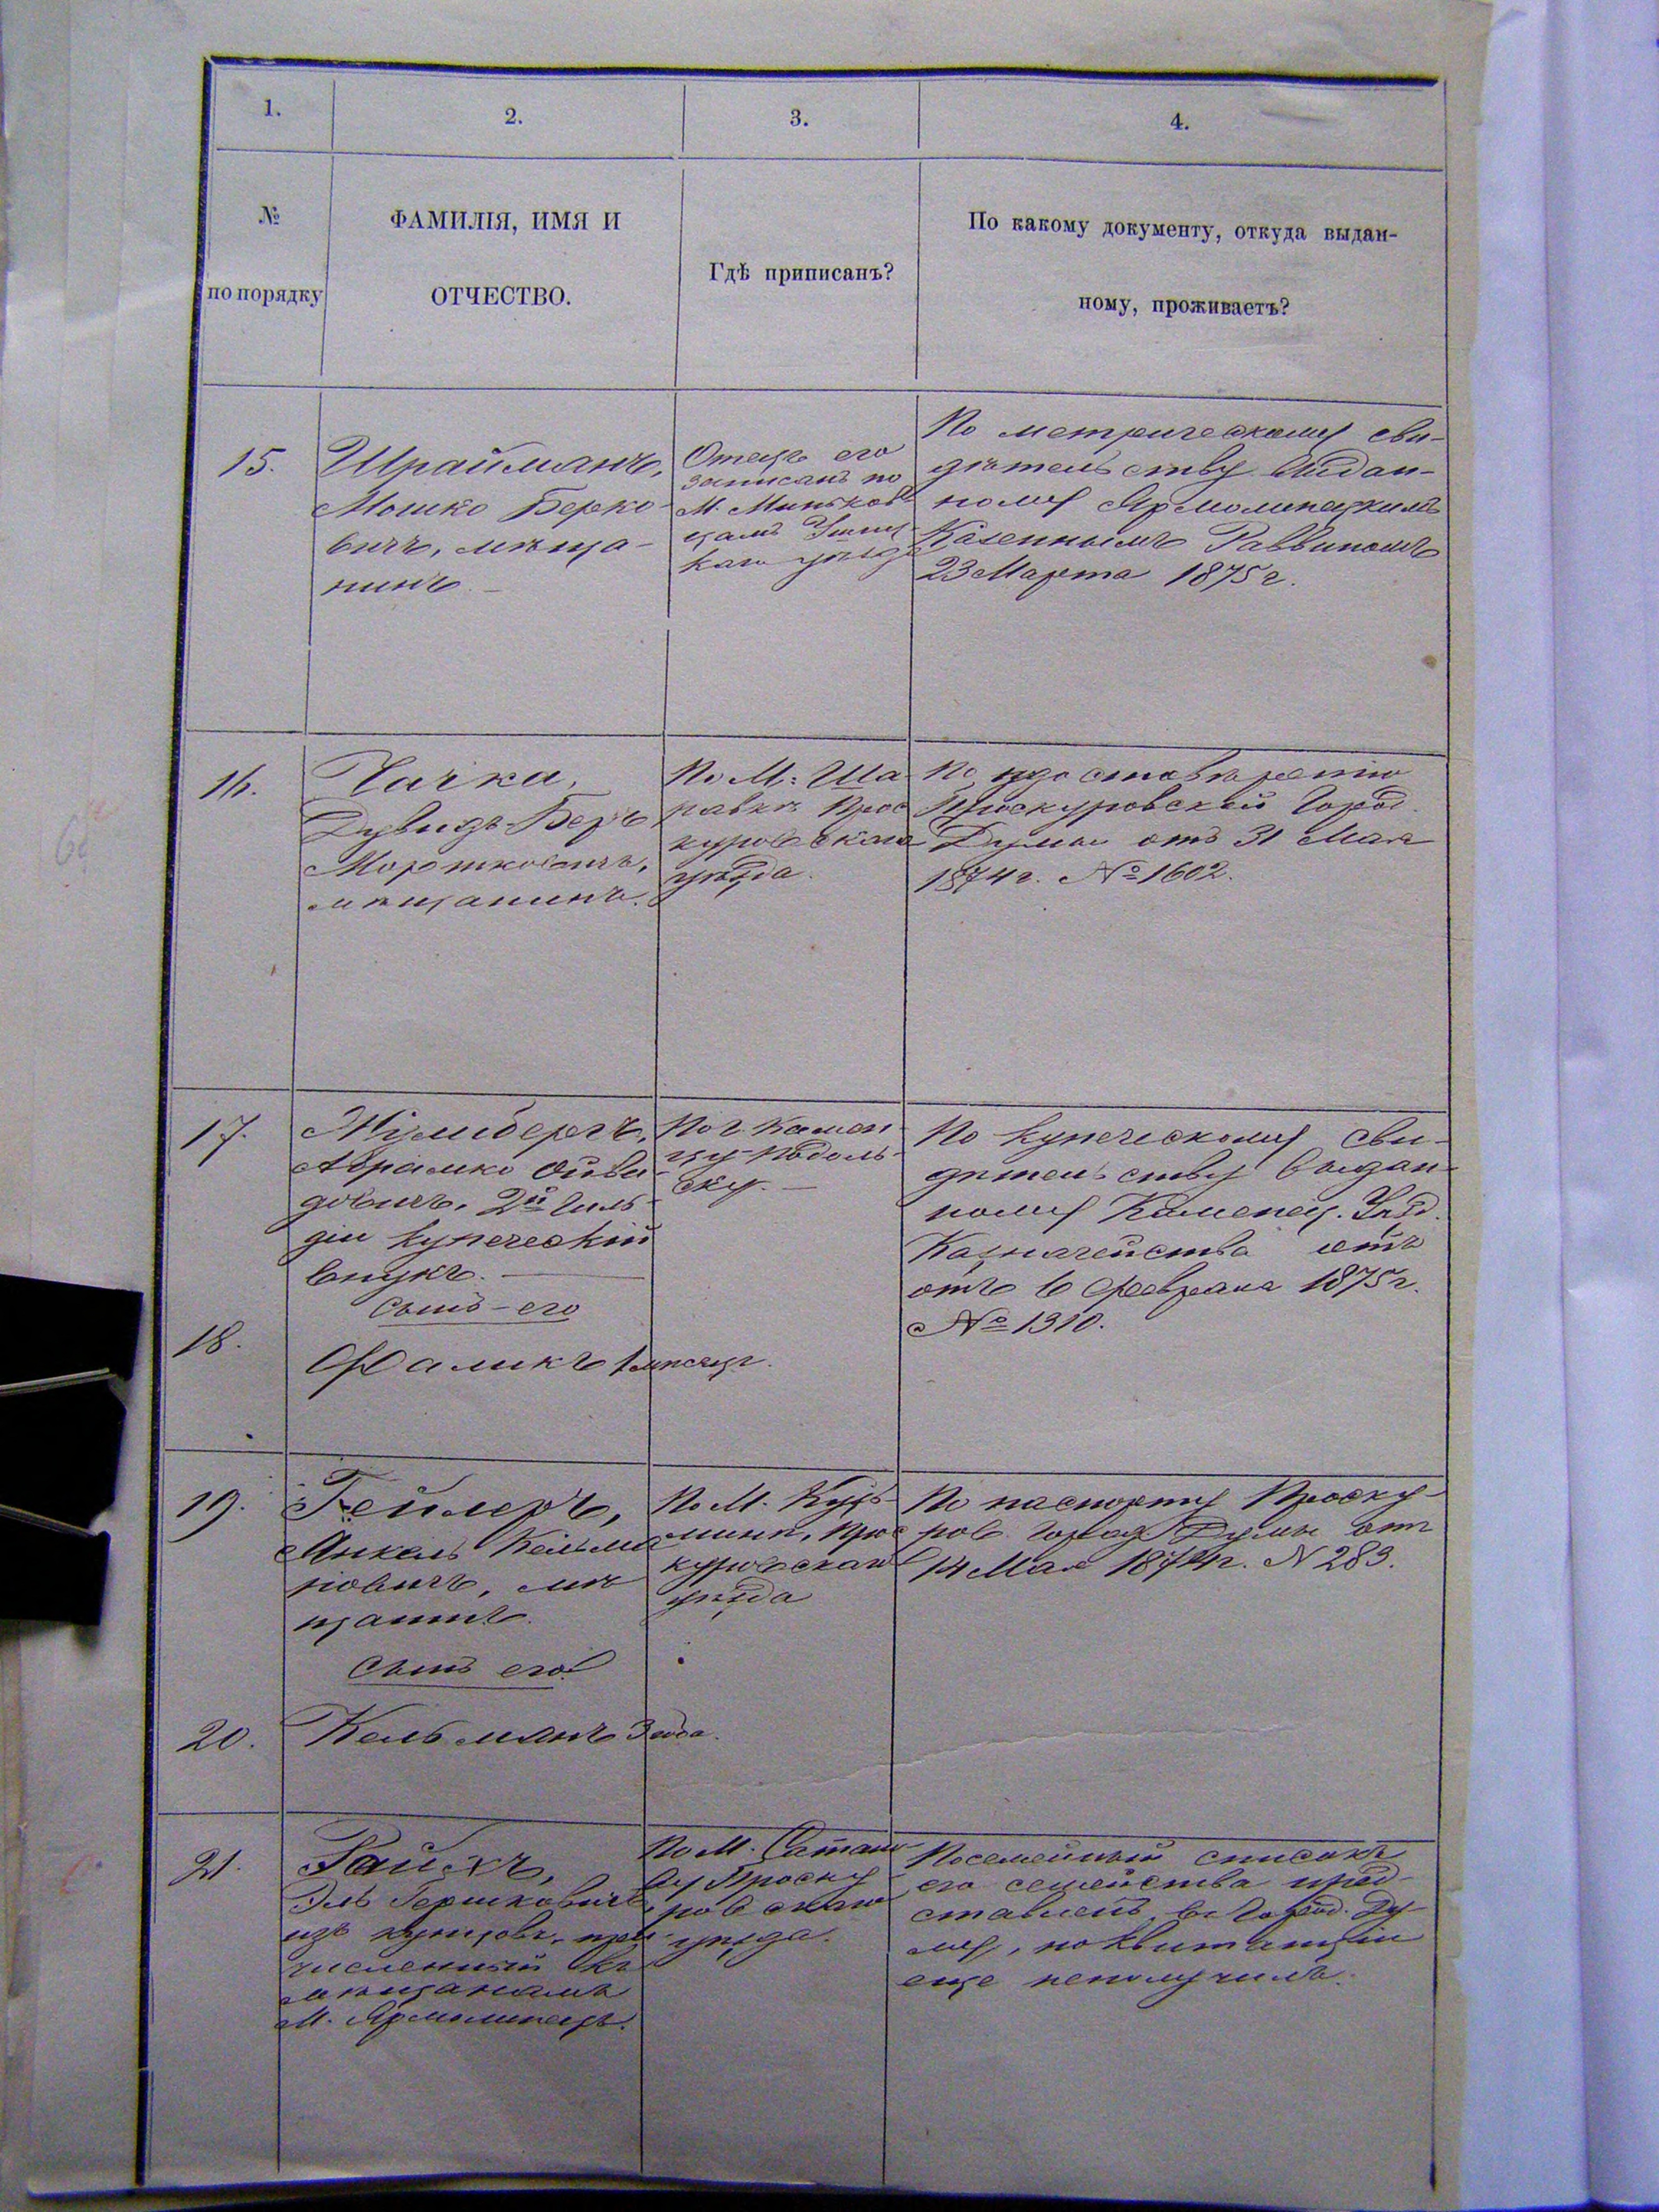 1.
2.
3.
4.
№
по порядку
ФАМИЛІЯ, ИМЯ И
ОТЧЕСТВО.
Гдѣ приписанъ?
По какому документу, откуда выдан-
ному, проживаетъ?
15.
Шрайманъ,
Мошко Берко-
вичъ, мѣща-
нинъ
Отецъ его
записанъ по
М. Миньков-
цамъ Ушиц-
каго уѣзда
По метрическому сви-
дѣтельству выдан-
ному Ярмолинецкимъ
Казеннымъ Раввиномъ
23 Марта 1875 г.
16.
Чачка,
Дувидъ-Беръ
Мортковичъ,
мѣщанинъ.
По М. Ша-
равкѣ Прос-
куровскаго
уѣзда.
По удостовѣренію
Проскуровской Город.
Думы отъ 31 Мая
1874 г. № 1602.
17.
Абрамко
довичъ, 2й Гиль-
діи купеческій
внукъ.
По г. Камен-
цу-Подоль-
ску.
По купеческому сви-
дѣтельству выдан-
ному Каменец. Уѣзд.
Казначейства
отъ 6 Февраля 1875 г.
№ 1310.
сынъ его
18.
Фаликъ 1 мѣсяцъ.
19.
Геллеръ,
Янкель Кельма-
новичъ, мѣ-
щанинъ.
По М. Кузь-
мину, Прос-
куровскаго
уѣзда
По паспорту Проску-
ров. Город. Думы отъ
14 Мая 1874 г. № 283.
сынъ его
20.
Кельманъ 3 года.
21.
Райхъ,
Эль Гершковичъ
изъ купцовъ, при-
численный къ
мѣщанамъ
М. Ярмолинецъ.
По М. Сатано-
ву Проску-
ровскаго
уѣзда.
Посемейный списокъ
его семейства пред-
ставленъ въ Город. Ду-
му, но квитанціи
еще неполучилъ.